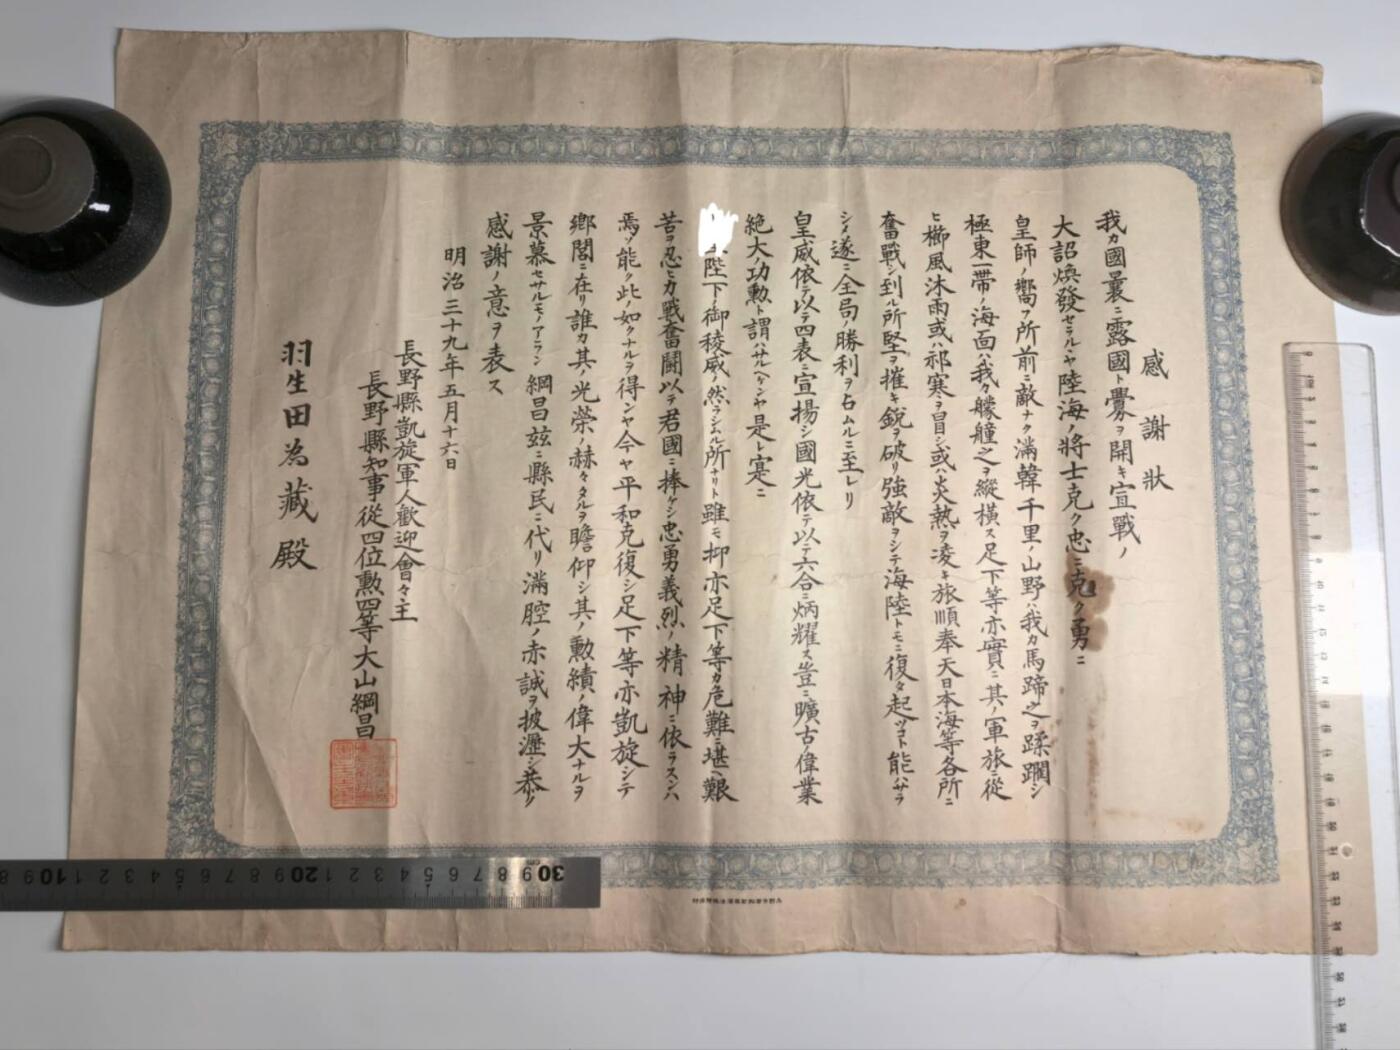 感謝狀
我カ國曩ニ露國ト釁ヲ開キ宣戰ノ
大詔煥發セラルヤ陸海ノ將士克ク忠ニ克ク勇ニ
皇師ノ嚮フ所前ニ敵ナク滿韓千里ノ山野ハ我カ馬蹄之ヲ蹂躙シ
極東一帶ノ海面ハ我カ艨艟之ヲ縱橫ス足下等亦實ニ其ノ軍旅ニ從
ヒ櫛風沐雨或ハ祁寒ヲ冒シ或ハ炎熱ヲ凌キ旅順奉天日本海等各所ニ
奮戰シ到ル所堅ヲ摧キ銳ヲ破リ強敵ヲシテ海陸トモニ復タ起ツコト能ハサラ
シメ遂ニ全局ノ勝利ヲ占ムルニ至レリ
皇威依テ以テ四表ニ宣揚シ國光依テ以テ六合ニ炳耀ス豈ニ曠古ノ偉業
絶大ノ功勲ト謂ハサルヘケンヤ是レ寔ニ
陛下ノ御稜威ノ然ラシムル所ナリト雖モ抑亦足下等カ危難ニ堪ヘ艱
苦ヲ忍ヒ力戰奮鬪以テ君國ニ捧ケシ忠勇義烈ノ精神ニ依ラスンハ
焉ソ能ク此ノ如クナルヲ得ンヤ今ヤ平和克復シ足下等亦凱旋シテ
鄉閭ニ在リ誰カ其ノ光榮ノ赫々タルヲ瞻仰シ其ノ勳績ノ偉大ナルヲ
景慕セサルモノアラン綱昌玆ニ縣民ニ代リ滿腔ノ赤誠ヲ披瀝シ恭ク
感謝ノ意ヲ表ス
明治三十九年五月十六日
長野縣凱旋軍人歡迎會々主
長野縣知事從四位勲四等大山綱昌
羽生田為藏殿